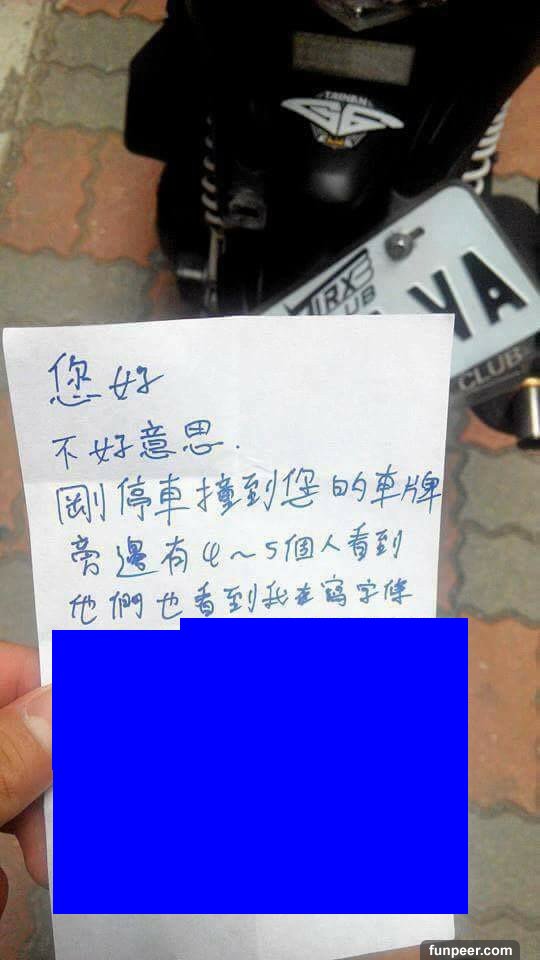 TAINAN
G6
RX
UB
VA
CLUB
您好
不好意思.
剛停車撞到您的車牌
旁邊有4~5個人看到
他們也看到我在寫字條
funpeer.com